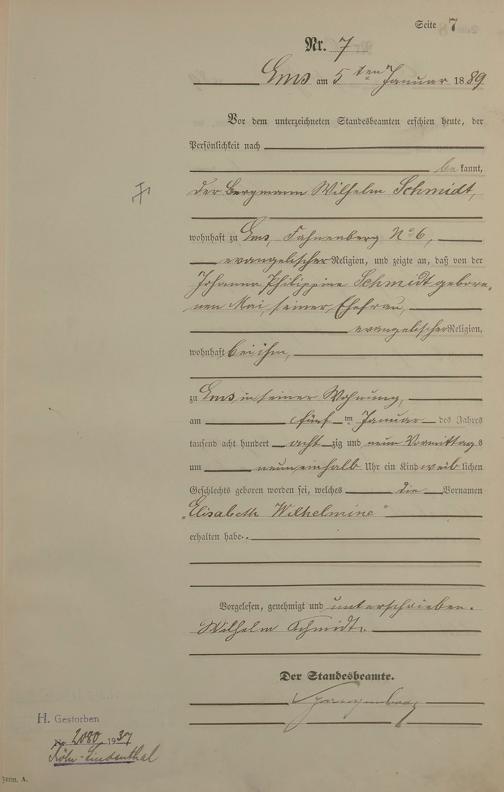 Seite 7
Nr. 7
Ems am 5 ten Januar 1889
Vor dem unterzeichneten Standesbeamten erschien heute, der
Persönlichkeit nach
be kannt,
der Bergmann Wilhelm Schmidt,
wohnhaft zu Ems, Fahnenberg No 6,
evangelischer Religion, und zeigte an, daß von der
Johanna Philippine Schmidt gebore-
nen Mai, seiner Ehefrau,
evangelischer Religion,
wohnhaft bei ihm,
zu Ems in seiner Wohnung,
am fünf ten Januar des Jahres
tausend acht hundert acht zig und neun Vormittags
um neuneinhalb Uhr ein Kind weib lichen
Geschlechts geboren worden sei, welches die Vornamen
"Elisabeth Wilhelmine"
erhalten habe.
Vorgelesen, genehmigt und unterschrieben.
Wilhelm Schmidt.
Der Standesbeamte.
H. Gestorben
Nr. 2080 1937
Köln-Lindenthal
Form. A.